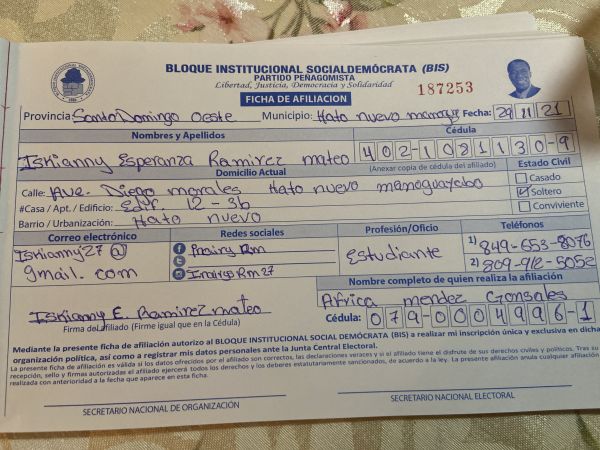 BLOQUE INSTITUCIONAL SOCIALDEMÓCRATA (BIS)
PARTIDO PEÑAGOMISTA
Libertad, Justicia, Democracia y Solidaridad
187253
FICHA DE AFILIACION
Provincia: Santo Domingo Oeste Municipio: Hato nuevo Fecha: 29 11 21
Nombres y Apellidos Cédula
Iskianny Esperanza Ramirez mateo 402-1081130-9
Domicilio Actual (Anexar copia de cédula del afiliado) Estado Civil
Calle: Ave. Diego morales Hato nuevo manoguayabo Casado
#Casa / Apt. / Edificio: Edif. 12-3b Soltero
Barrio / Urbanización: Hato nuevo Conviviente
Correo electrónico Redes sociales Profesión/Oficio Teléfonos
Iskianny27@ Rm Estudiante 1) 849-653-8076
gmail.com 2) 809-912-5052
Rm27
Nombre completo de quien realiza la afiliación
Iskianny E. Ramirez mateo Africa mendez Gonsales
Firma del afiliado (Firme igual que en la Cédula) Cédula: 079-0004996-1
Mediante la presente ficha de afiliación autorizo al BLOQUE INSTITUCIONAL SOCIAL DEMÓCRATA (BIS) a realizar mi inscripción única y exclusiva en dicha
organización política, así como a registrar mis datos personales ante la Junta Central Electoral.
La presente ficha de afiliación es válida si los datos ofrecidos por el afiliado son correctos, las declaraciones veraces y si el afiliado tiene el disfrute de sus derechos civiles y políticos. Tras su
recepción, sello y firmas autorizadas el afiliado ejercerá todos los derechos y los deberes estatutariamente sancionados, de acuerdo a la ley. La presente afiliación anula cualquier afiliación
realizada con anterioridad a la fecha que aparece en esta ficha.
SECRETARIO NACIONAL DE ORGANIZACIÓN SECRETARIO NACIONAL ELECTORAL